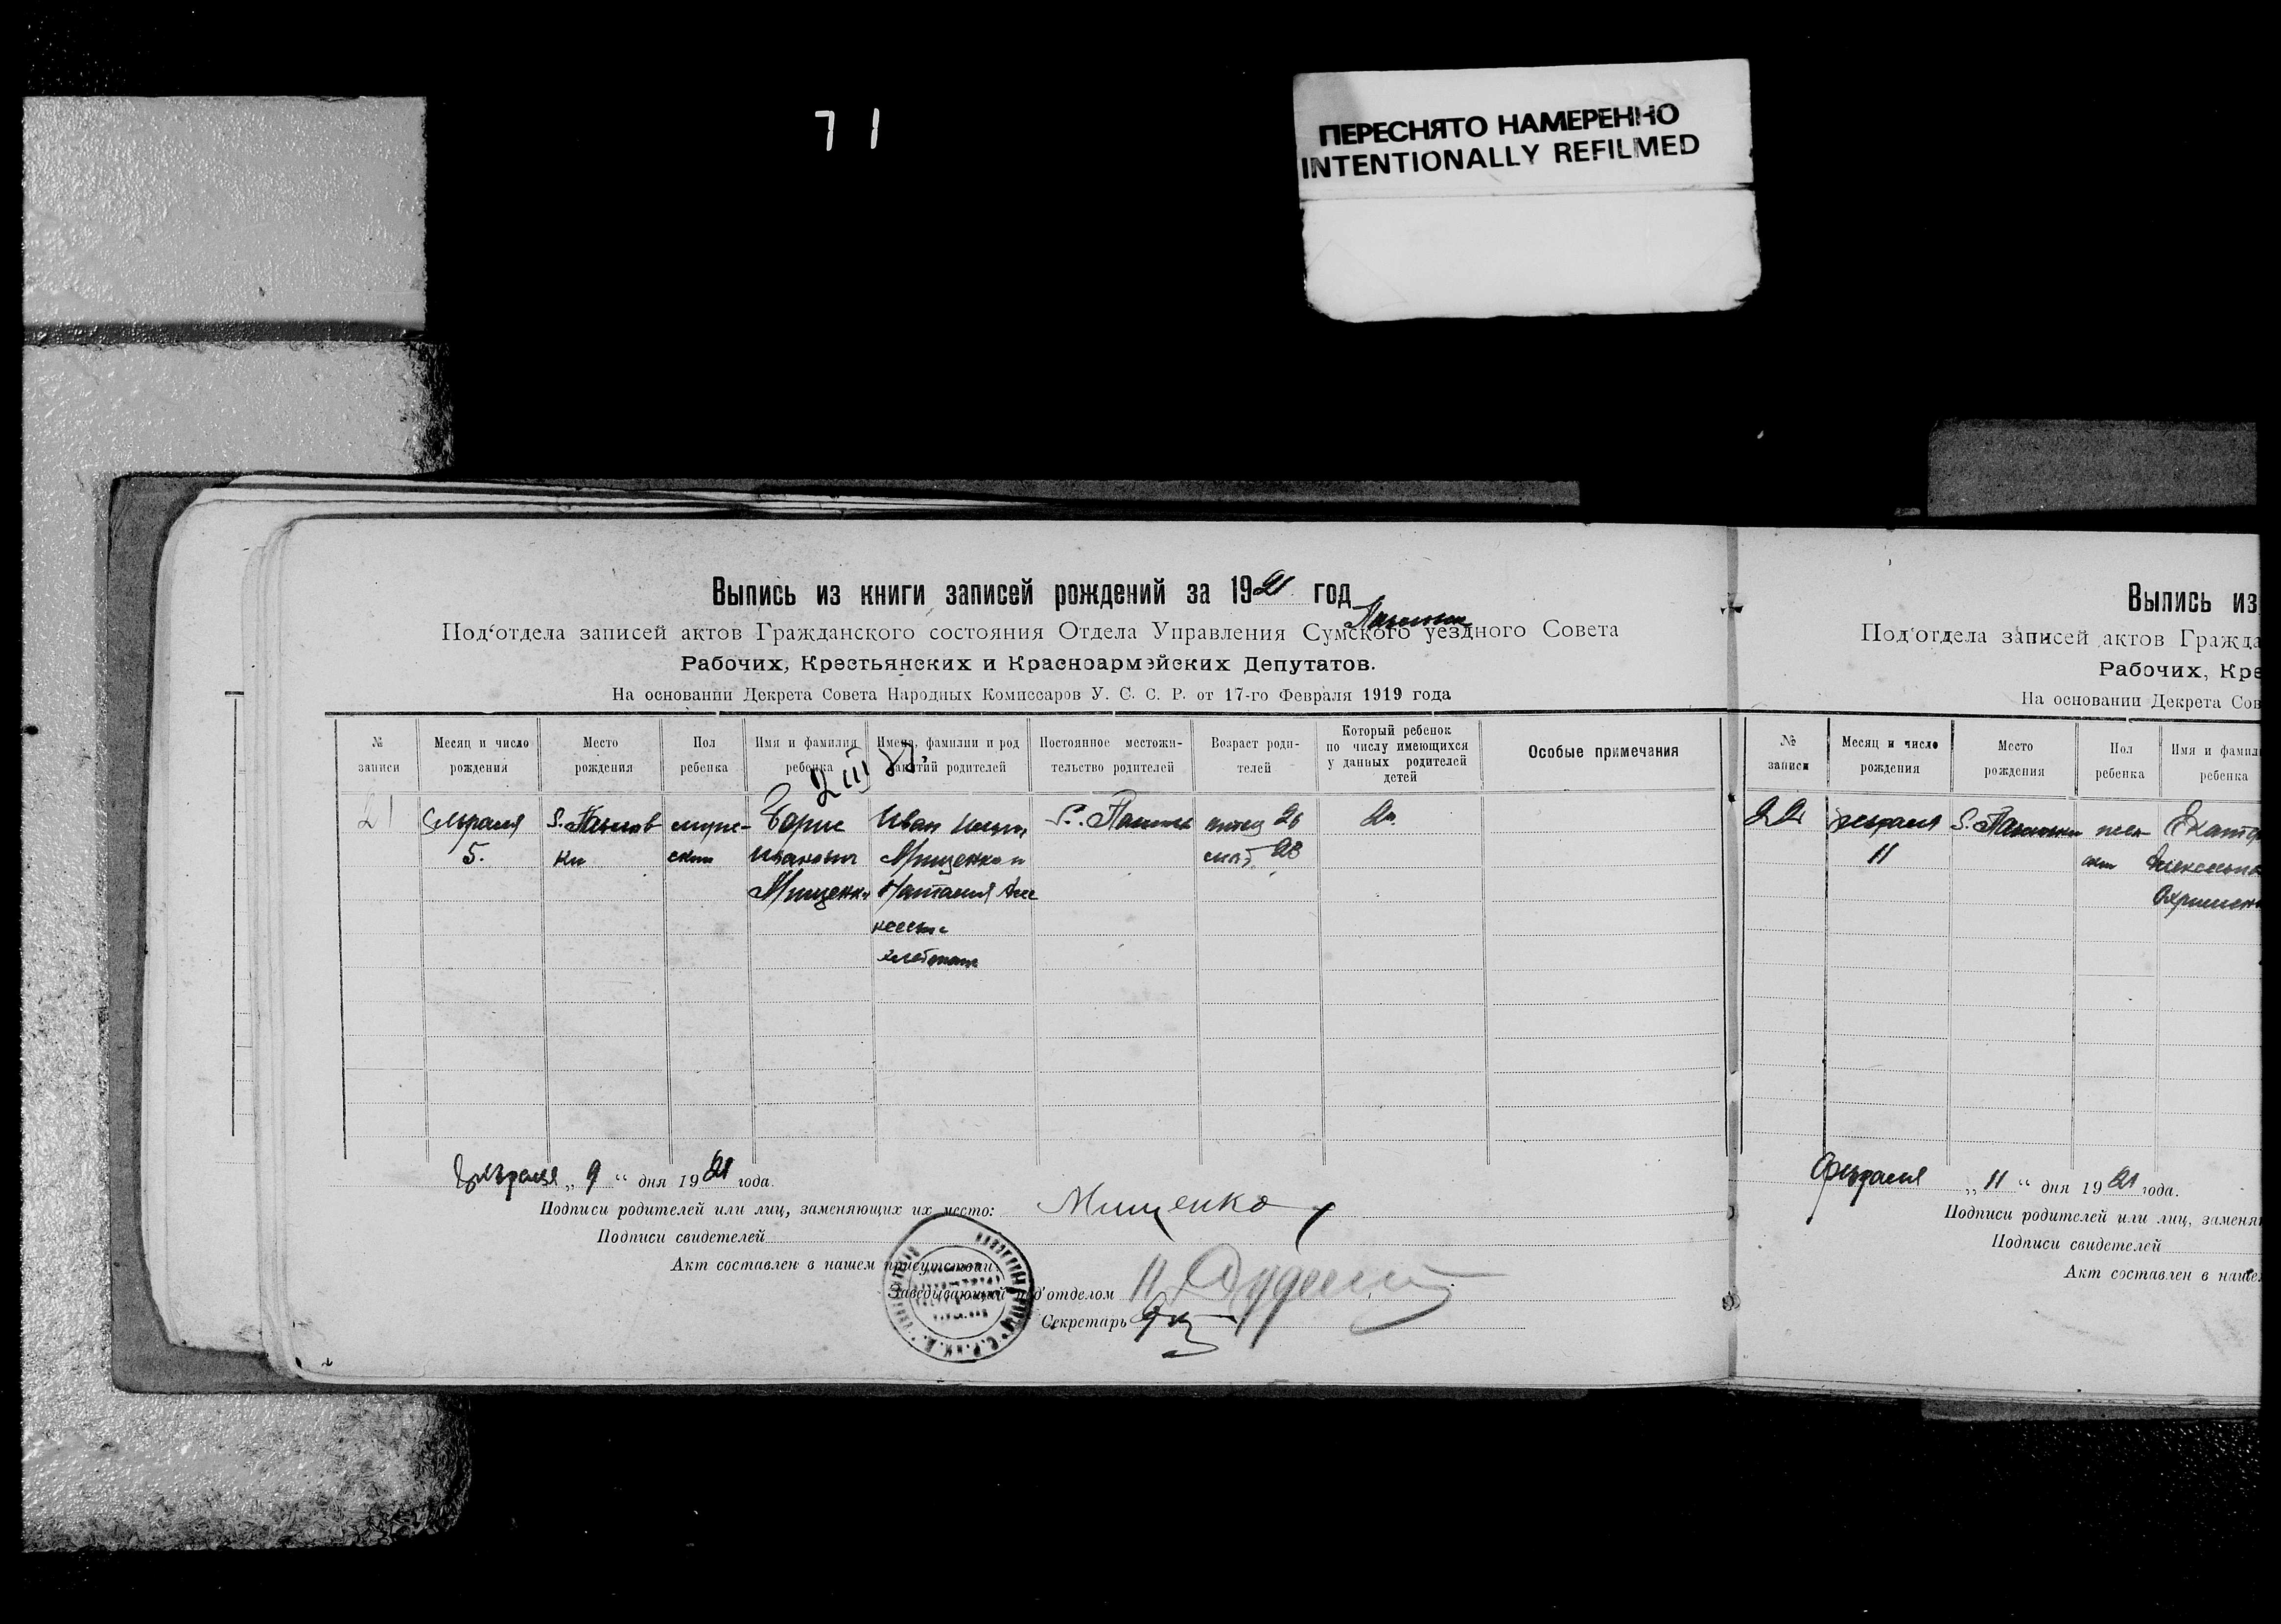 71
ПЕРЕСНЯТО НАМЕРЕННО
INTENTIONALLY REFILMED
Выпись из книги записей рождений за 1921 год
Под'отдела записей актов Гражданского состояния Отдела Управления Сумского уездного Совета
Рабочих, Крестьянских и Красноармейских Депутатов.
На основании Декрета Совета Народных Комиссаров У. С. С. Р. от 17-го Февраля 1919 года
№ записи
Месяц и число рождения
Место рождения
Пол ребенка
Имя и фамилия ребенка
Имена, фамилии и род занятий родителей
Постоянное местожительство родителей
Возраст родителей
Который ребенок по числу имеющихся у данных родителей детей
Особые примечания
21
февраля
5.
мужс-
ский
Борис
Иванович
Мищенко
Иван
Мищенко и
Наталия
отец 26
мать 28
2.
Февраля „9“ дня 1921 года.
Подписи родителей или лиц, заменяющих их место: Мищенко
Подписи свидетелей
Акт составлен в нашем присутствии:
Заведывающий под'отделом
Секретарь
Выпись из
Под'отдела записей актов Гражда
Рабочих, Кре
На основании Декрета Сов
№ записи
Месяц и число рождения
Место рождения
Пол ребенка
Имя и фамил
ребенка
22
февраля
11
жен
ский
Екатер
Алексеевна
Охрименк
Февраля „11“ дня 1921 года.
Подписи родителей или лиц, заменя
Подписи свидетелей
Акт составлен в наше